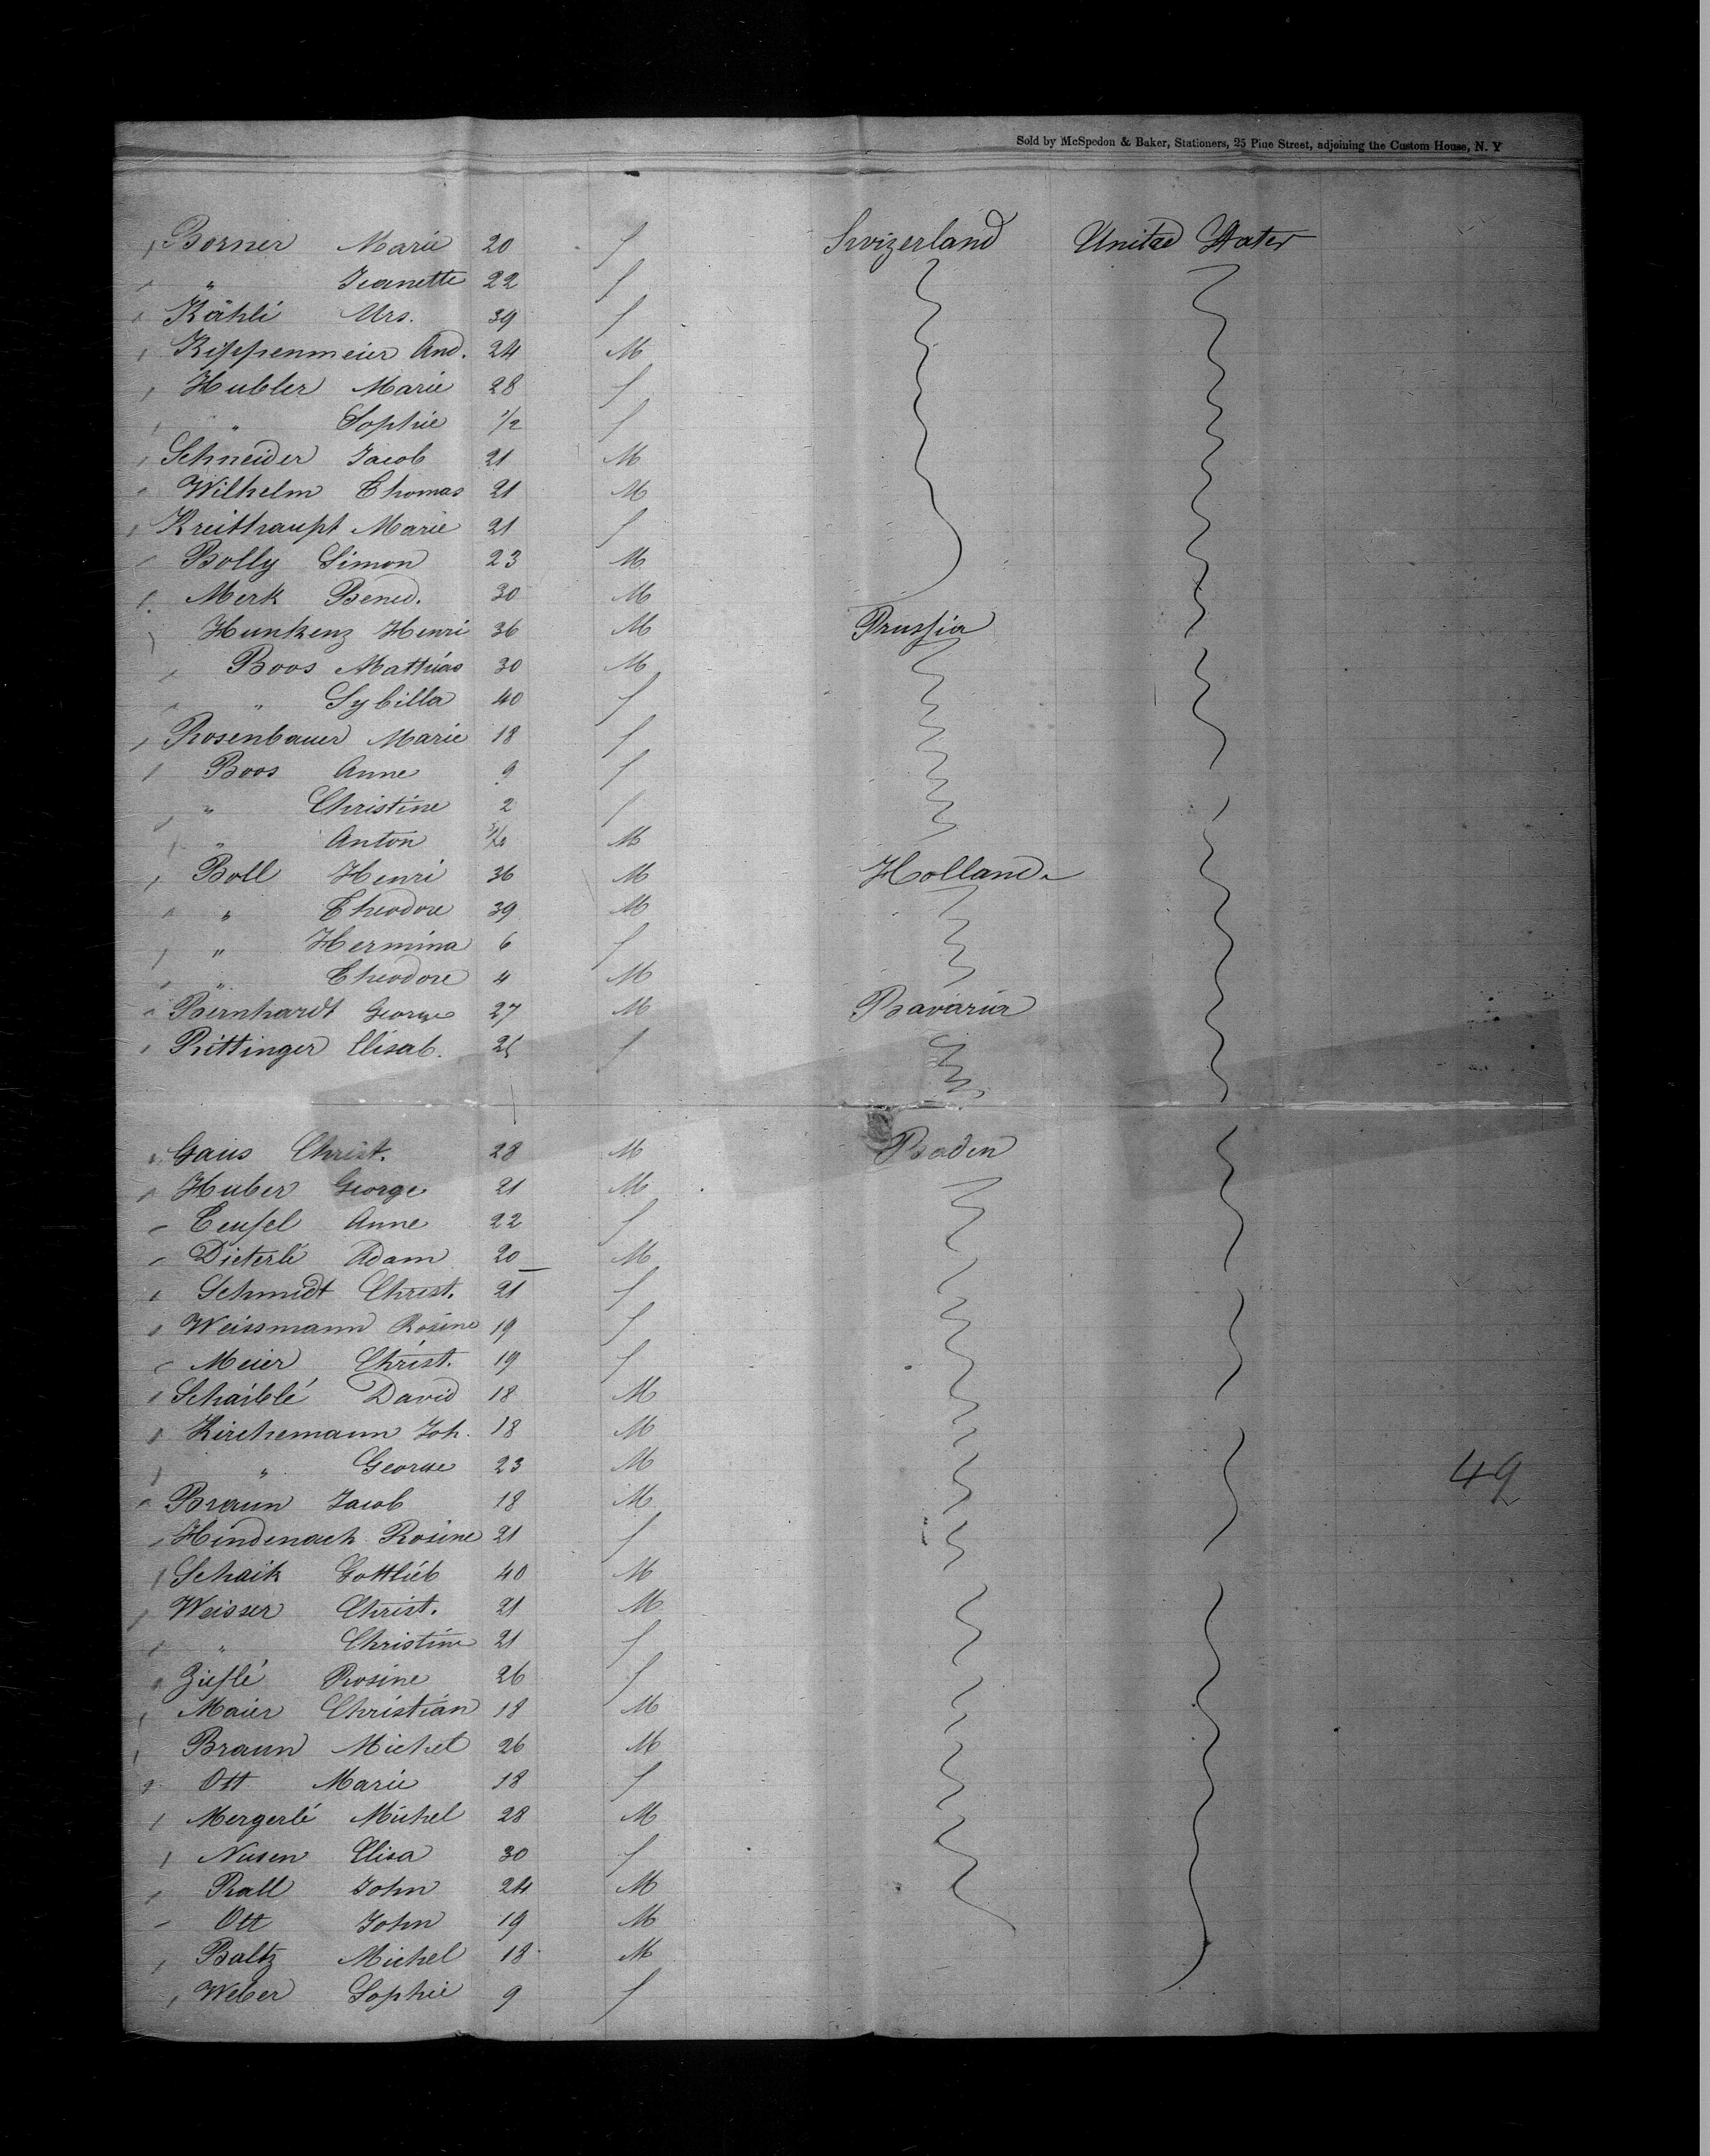 Sold by McSpedon & Baker, Stationers, 25 Pine Street, adjoining the Custom House, N. Y
Borner Marie 20 f Swizerland United States
" Jeanette 22 f
Kähli Urs. 39 f
Kippenmeier And. 24 M
Hubler Marie 28 f
" Sophie 1/2 f
Schneider Jacob 21 M
Wilhelm Thomas 21 M
Kreithaupt Marie 21 f
Bolly Simon 23 M
Merk Bened. 30 M
Hunkenz Henri 36 M Prussia
Boos Mathias 30 M
" Sybilla 40 f
Rosenbauer Marie 18 f
Boos Anne 9 f
" Christine 2 f
" Anton M
Boll Henri 36 M Holland
" Theodore 39 M
" Hermina 6 f
" Theodore 4 M
Bernhardt George 27 M Bavaria
Rittinger Elisab. f
Gaus Christ. 28 M Baden
Huber George 21 M
Teufel Anne 22 f
Dieterlé Adam 20 M
Schmidt Christ. 21 f
Weissmann Rosine 19 f
Meier Christ. 19 f
Schaiblé David 18 M
Kirchemann Joh. 18 M
" George 23 M 49
Braun Jacob 18 M
Hindenach Rosine 21 f
Schaik Gottlieb 40 M
Weisser Christ. 21 M
" Christine 21 f
Zieflé Rosine 26 f
Maier Christian 18 M
Braun Michel 26 M
Ott Marie 18 f
Mergerlé Michel 28 M
Nusen Elisa 30 f
Rall John 24 M
Ott John 19 M
Baltz Michel 18 M
Weber Sophie 9 f